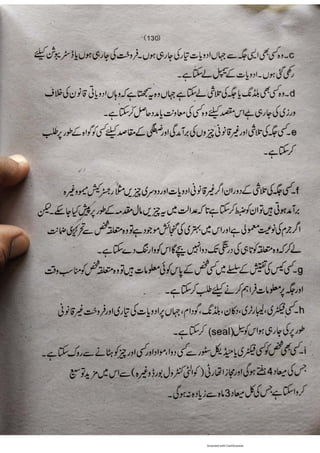 (130)
c۔ وہ کسی بھی ایسی جگہ سے جہاں ادویات تیار کی جا رہی ہوں۔ فروخت کی جا رہی ہوں یا ڈسٹری بیوشن کیلئے
رکھی گئی ہوں۔ ادویات کے سیمپل لے سکتا ہے۔
d۔ وہ کسی بھی بلڈنگ یا جگہ کی تلاشی لے سکتا ہے جہاں وہ یہ سمجھتا ہے کہ وہاں ادویاتی قانون کی خلاف
ورزی کی جا رہی ہے اس مقصد کیلئے وہ کسی کی معاونت یا مدد حاصل کر سکتا ہے۔
e۔ کسی جگہ کی تلاشی اور غیر قانونی چیزوں کی برآمدگی اور ضبطگی کے مقاصد کیلئے کسی کو گواہ کے طور پر طلب
کر سکتا ہے۔
f۔ کسی جگہ کی تلاشی کے دوران اگر غیر قانونی ادویات اور دوسری چیزیں مثلاً رجسٹر، کیش میمو وغیرہ
برآمد ہوتی ہیں تو ان کو ضبط کر سکتا ہے تاکہ عدالت میں یہ چیزیں مال مقدمہ کے طور پر پیش کیا جا سکے۔ لیکن
اگر جرم کی نوعیت معمولی ہے اور اس میں بہتری کی گنجائش موجود ہے تو وہ متعلقہ شخص سے تحریری ضمانت
لے کر کہ وہ متعلقہ کوتاہی کی درستگی تک دوا نہیں بیچے گا اس کو وارننگ دے سکتا ہے۔
g۔ کسی کیس کی تفتیش کے سلسلے میں کسی شخص کے پاس کوئی معلومات ہیں تو وہ متعلقہ شخص کو مناسب وقت
اور جگہ پر معلومات فراہم کرنے کیلئے طلب کر سکتا ہے۔
h۔ کسی فیکٹری، لیبارٹری، دکان، بلڈنگ، گودام، جہاں پر ادویات کی تیاری اور فروخت غیر قانونی
طور پر کی جا رہی ہو اس کو سیل (seal) کر سکتا ہے۔
i۔ کسی بھی شخص کو کسی فیکٹری یا میڈیکل سٹور سے کسی دوا، مواد اور کسی اور چیز کو ہٹانے سے روک سکتا ہے۔
جس کی میعاد 4 ہفتے ہوگی اور مجاز اتھارٹی (کوالٹی کنٹرول بورڈ وغیرہ) سے اس میں مزید توسیع
کروا سکتا ہے جس کی کل میعاد 3 ماہ سے زیادہ نہ ہوگی۔
Scanned with CamScanner